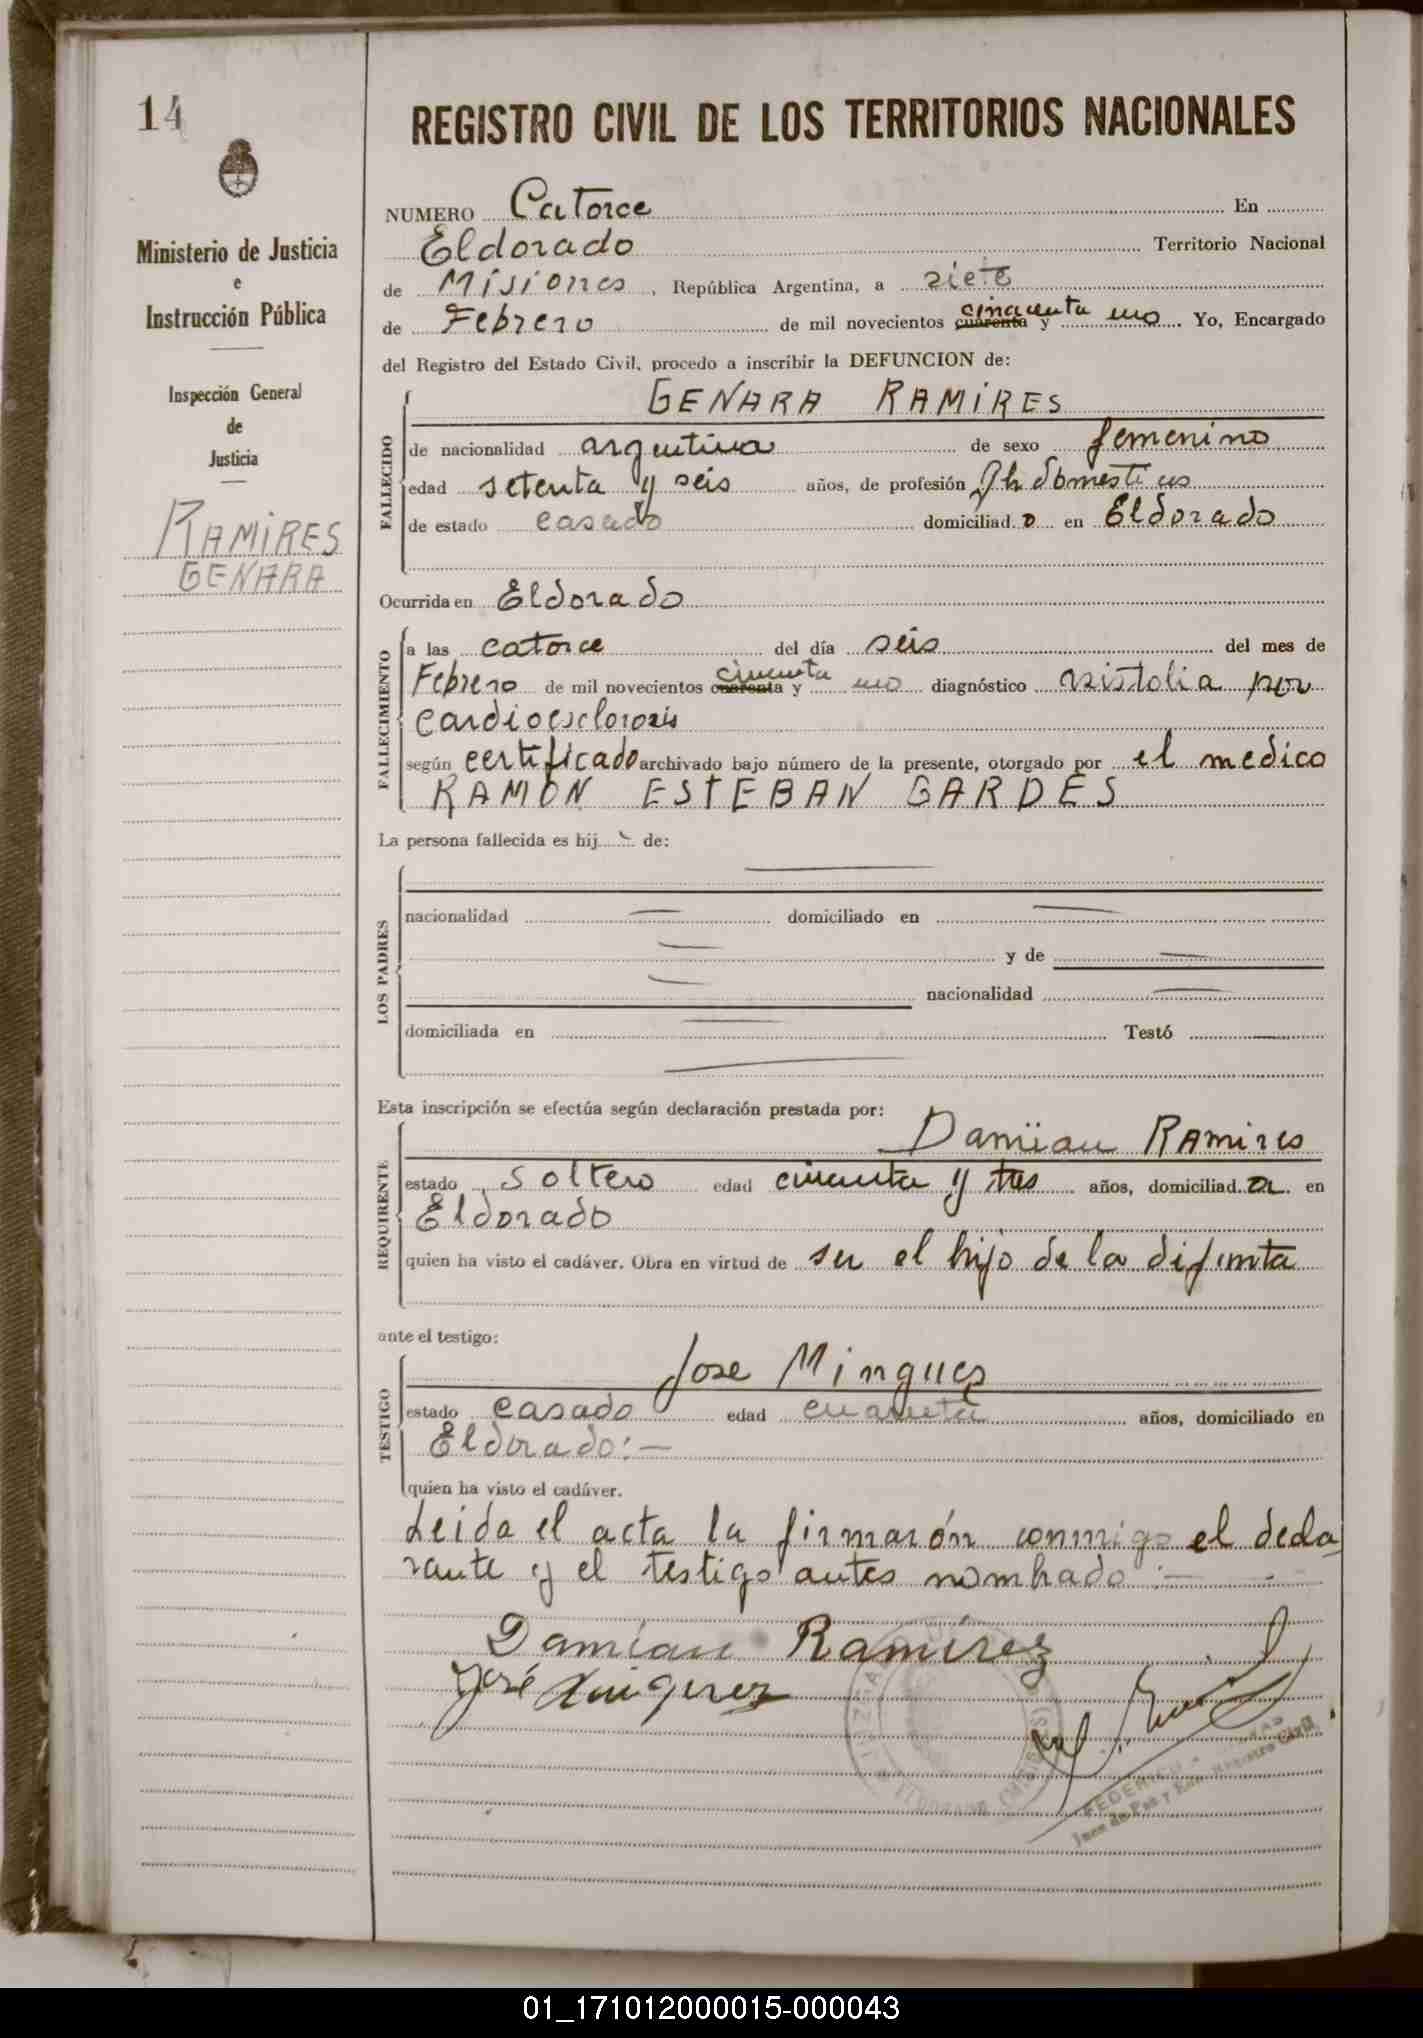 14
REGISTRO CIVIL DE LOS TERRITORIOS NACIONALES
Ministerio de Justicia
e
Instrucción Pública
Inspección General
de
Justicia
RAMIRES
GENARA
NUMERO Catorce En
Eldorado Territorio Nacional
de Misiones, República Argentina, a siete
de Febrero de mil novecientos cuarenta cincuenta y uno. Yo, Encargado
del Registro del Estado Civil, procedo a inscribir la DEFUNCION de:
GENARA RAMIRES
FALLECIDO
de nacionalidad argentina de sexo femenino
edad setenta y seis años, de profesión Qh domesticos
de estado casado domiciliad o en Eldorado
Ocurrida en Eldorado
FALLECIMIENTO
a las catorce del día seis del mes de
Febrero de mil novecientos cuarenta cincuenta y uno diagnóstico asistolia por
cardioesclorosis
según certificado archivado bajo número de la presente, otorgado por el medico
RAMON ESTEBAN GARDES
La persona fallecida es hij de:
LOS PADRES
nacionalidad domiciliado en
y de
nacionalidad
domiciliada en Testó
Esta inscripción se efectúa según declaración prestada por:
Damian Ramires
REQUIRENTE
estado soltero edad cincuenta y tres años, domiciliad o en
Eldorado
quien ha visto el cadáver. Obra en virtud de ser el hijo de la difunta
ante el testigo:
Jose Mingues
TESTIGO
estado casado edad cuarenta años, domiciliado en
Eldorado:—
quien ha visto el cadáver.
Leida el acta la firmarón conmigo el decla
rante y el testigo antes nombrado:—
Damian Ramírez
José
FEDERICO
Juez de Paz y Enc. Registro Civil
ELDORADO (MISIONES)
01_171012000015-000043